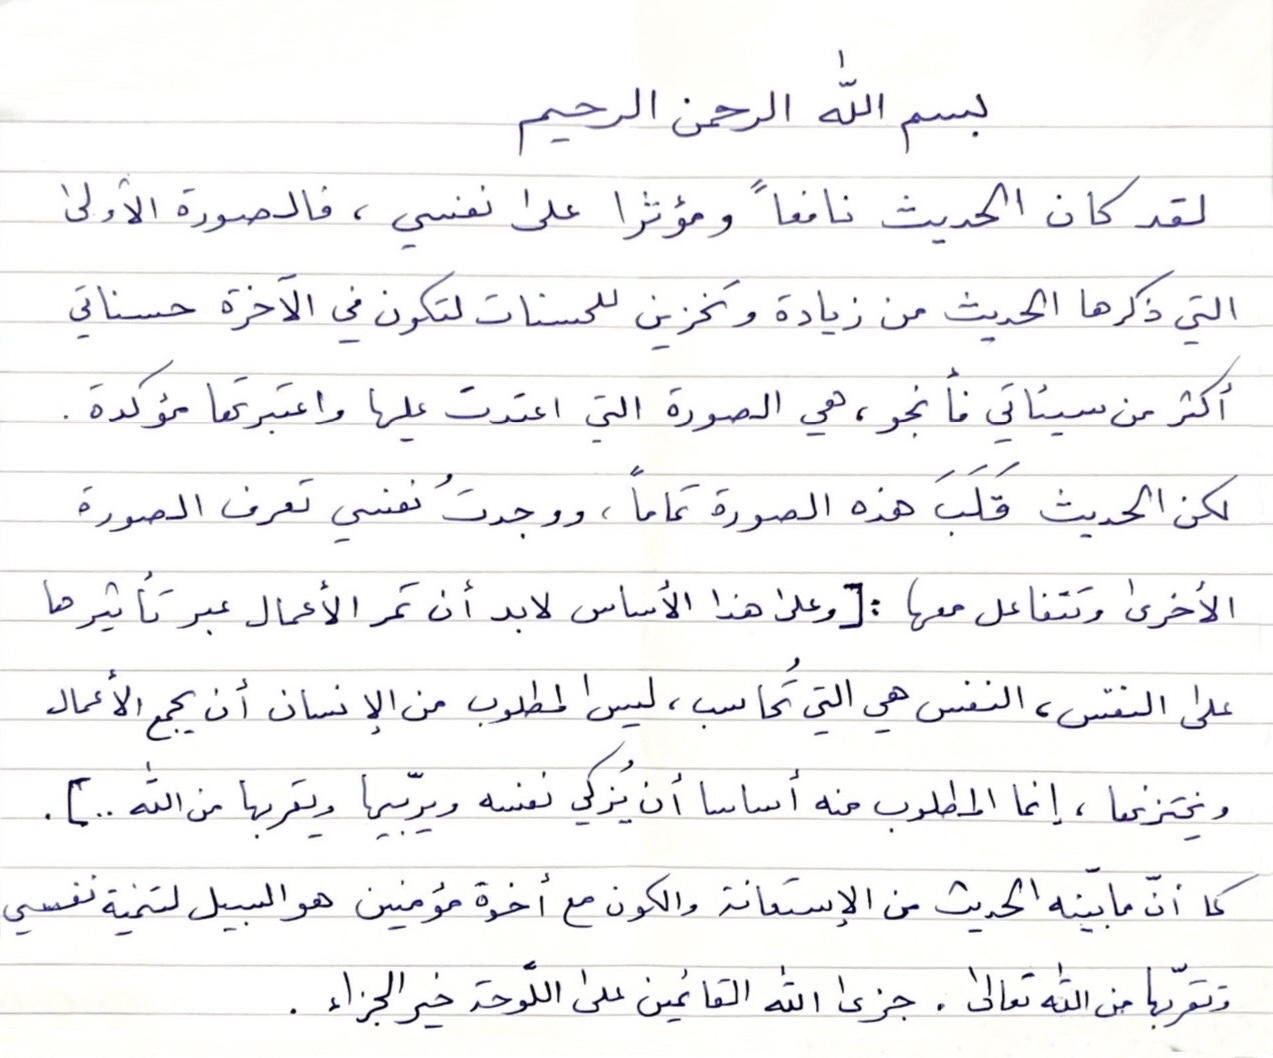 بسم اللّٰه الرحمن الرحيم
لقد كان الحديث نافعاً ومؤثرا على نفسي ، فالصورة الأولى
التي ذكرها الحديث من زيادة وتخزين للحسنات لتكون في الآخرة حسناتي
أكثر من سيئاتي فأنجو ، هي الصورة التي اعتدت عليها واعتبرتها مؤكدة .
لكن الحديث قَلَبَ هذه الصورة تماماً ، ووجدتُ نفسي تعرف الصورة
الأخرى وتتفاعل معها : [وعلى هذا الأساس لابد أن تمر الأعمال عبر تأثيرها
على النفس ، النفس هي التي تُحاسب ، ليس المطلوب من الإنسان أن يجمع الأعمال
ويختزنها ، إنما المطلوب منه أساسا أن يُزكي نفسه ويربّيها ويقربها من اللّٰه ..] .
كما أنّ ما بيّنه الحديث من الإستعانة والكون مع أخوة مؤمنين هو السبيل لتنمية نفسي
وتقرّبها من اللّٰه تعالى . جزى اللّٰه القائمين على اللَّوحة خير الجزاء .